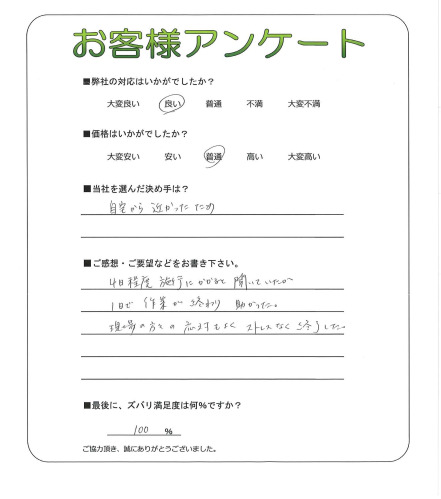 お客様アンケート
■弊社の対応はいかがでしたか？
大変良い 良い 普通 不満 大変不満
■価格はいかがでしたか？
大変安い 安い 普通 高い 大変高い
■当社を選んだ決め手は？
自宅から近かったため
■ご感想・ご要望などをお書き下さい。
4日程度施行にかかると聞いていたが
1日で作業が終わり助かった。
現場の方との応対もよくストレスなく終了した。
■最後に、ズバリ満足度は何％ですか？
100 ％
ご協力頂き、誠にありがとうございました。